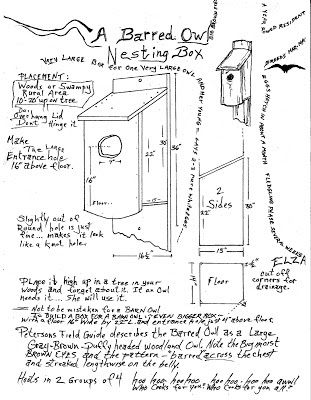 A Barred Owl
Nesting Box
VERY LARGE BOX FOR ONE VERY LARGE OWL
AND HER YOUNG -
A YEAR ROUND RESIDENT
BREEDS MAR-MAY
EGGS HATCH IN ABOUT A MONTH
FLEDGLING PHASE SEVERAL WEEKS
PLACEMENT:
Woods or Swampy
Rural Area
10-20' up on tree
Do:
Overhang Lid
Don't Hinge it
Make
The Large
Entrance hole
16" above floor.
8"
16"
22"
30"
36"
Floor
16½"
Slightly out of
Round hole is just
fine... makes it look
like a knot hole.
2
Sides
22"
30"
15"
14"
Floor
cut off
corners for
drainage.
ELZA
Place it high up in a tree in your
woods and forget about it. If an Owl
needs it... She will use it.
Not to be mistaken for a BARN Owl
TO BUILD A BOX FOR A BARN OWL: EVEN BIGGER BOX -
with a floor 16" wide by 22" L. and entrance hole just 4" above floor.
Petersons Field Guide describes the Barred Owl as a Large
Gray-Brown-Puffy headed woodland Owl. Note the Big moist
BROWN EYES, and the pattern - "barred across the chest
and streaked lengthwise on the belly.
Hoots in 2 Groups of 4 hoo hoo-hoo hoo hoo hoo-hoo hoo awwl
Who Cooks for you? Who Cooks for you A.M."